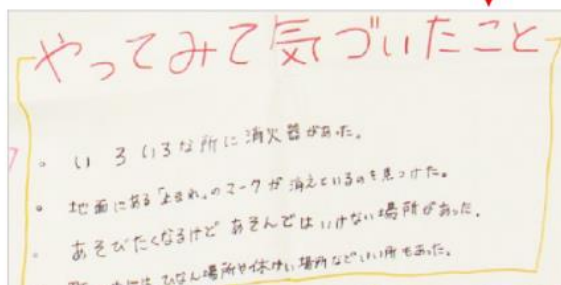 やってみて気づいたこと
・いろいろな所に消火器があった。
・地面にある「止まれ」のマークが消えているのを見つけた。
・あそびたくなるけどあそんではいけない場所があった。
ひなん場所や休けい場所などいい所もあった。